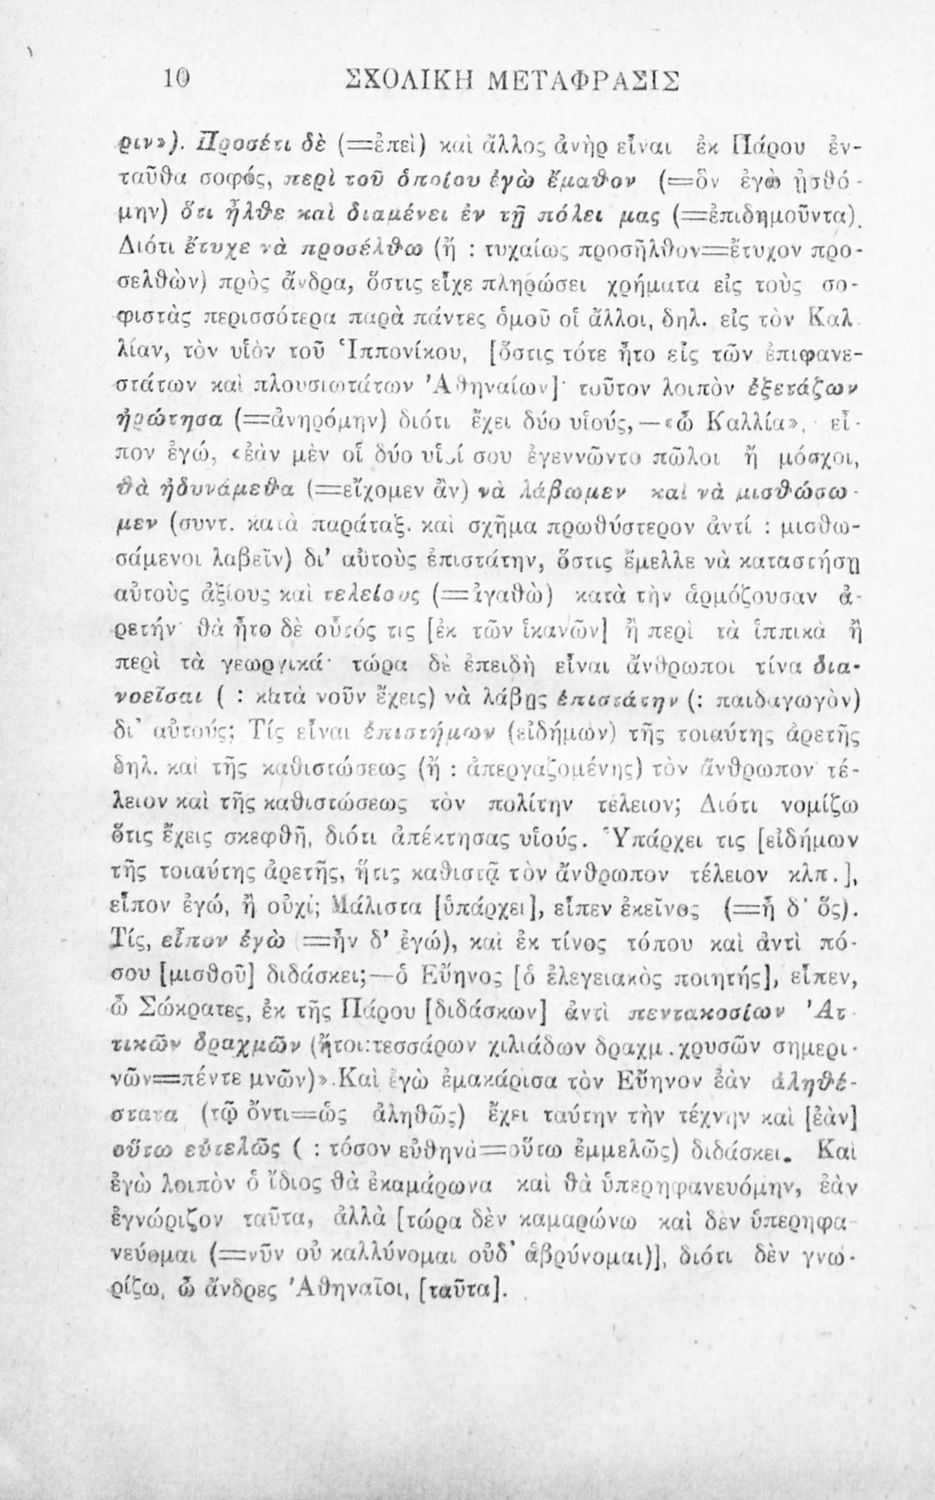 10 ΣΧΟΛΙΚΗ ΜΕΤΑΦΡΑΣΙΣ
ριν»). Προσέτι δὲ (=ἐπεὶ) καὶ ἄλλος ἀνὴρ εἶναι ἐκ Πάρου ἐν-
ταῦθα σοφός, περὶ τοῦ ὁποίου ἐγὼ ἔμαθον (=ὃν ἐγὼ ᾐσθό-
μην) ὅτι ἦλθε καὶ διαμένει ἐν τῇ πόλει μας (=ἐπιδημοῦντα).
Διότι ἔτυχε νὰ προσέλθω (ἤ : τυχαίως προσῆλθον=ἔτυχον προ-
σελθὼν) πρὸς ἄνδρα, ὅστις εἶχε πληρώσει χρήματα εἰς τοὺς σο-
φιστὰς περισσότερα παρὰ πάντες ὁμοῦ οἱ ἄλλοι, δηλ. εἰς τὸν Καλ
λίαν, τὸν υἱὸν τοῦ Ἱππονίκου, [ὅστις τότε ἦτο εἷς τῶν ἐπιφανε-
στάτων καὶ πλουσιωτάτων Ἀθηναίων]· τοῦτον λοιπὸν ἐξετάζων
ἠρώτησα (=ἀνηρόμην) διότι ἔχει δύο υἱούς,—«ὦ Καλλία», εἶ-
πον ἐγώ, «ἐὰν μὲν οἱ δύο υἱοί σου ἐγεννῶντο πῶλοι ἢ μόσχοι,
θὰ ἠδυνάμεθα (=εἴχομεν ἂν) νὰ λάβωμεν καὶ νὰ μισθώσω-
μεν (συντ. κατὰ παράταξ. καὶ σχῆμα πρωθύστερον ἀντί : μισθω-
σάμενοι λαβεῖν) δι' αὐτοὺς ἐπιστάτην, ὅστις ἔμελλε νὰ καταστήσῃ
αὐτοὺς ἀξίους καὶ τελείους (=ἀγαθὼ) κατὰ τὴν ἁρμόζουσαν ἀ-
ρετήν· θὰ ἦτο δὲ οὗτός τις [ἐκ τῶν ἱκανῶν] ἢ περὶ τὰ ἱππικὰ ἢ
περὶ τὰ γεωργικά· τώρα δὲ ἐπειδὴ εἶναι ἄνθρωποι τίνα δια-
νοεῖσαι ( : κατὰ νοῦν ἔχεις) νὰ λάβῃς ἐπιστάτην (: παιδαγωγὸν)
δι' αὐτούς; Τίς εἶναι ἐπιστήμων (εἰδήμων) τῆς τοιαύτης ἀρετῆς
δηλ. καὶ τῆς καθιστώσεως (ἤ : ἀπεργαζομένης) τὸν ἄνθρωπον τέ-
λειον καὶ τῆς καθιστώσεως τὸν πολίτην τέλειον; Διότι νομίζω
ὅτις ἔχεις σκεφθῆ, διότι ἀπέκτησας υἱούς. Ὑπάρχει τις [εἰδήμων
τῆς τοιαύτης ἀρετῆς, ἥτις καθιστᾷ τὸν ἄνθρωπον τέλειον κλπ.],
εἶπον ἐγώ, ἢ οὐχί; Μάλιστα [ὑπάρχει], εἶπεν ἐκεῖνος (=ἦ δ' ὅς).
Τίς, εἶπον ἐγὼ (=ἦν δ' ἐγώ), καὶ ἐκ τίνος τόπου καὶ ἀντὶ πό-
σου [μισθοῦ] διδάσκει;—ὁ Εὔηνος [ὁ ἐλεγειακὸς ποιητής], εἶπεν,
ὦ Σώκρατες, ἐκ τῆς Πάρου [διδάσκων] ἀντὶ πεντακοσίων Ἀτ-
τικῶν δραχμῶν (ἤτοι:τεσσάρων χιλιάδων δραχμ. χρυσῶν σημερι-
νῶν=πέντε μνῶν)».Καὶ ἐγὼ ἐμακάρισα τὸν Εὔηνον ἐὰν ἀληθέ-
στατα (τῷ ὄντι=ὡς ἀληθῶς) ἔχει ταύτην τὴν τέχνην καὶ [ἐὰν]
οὕτω εὐτελῶς ( : τόσον εὐθηνὰ=οὕτω ἐμμελῶς) διδάσκει. Καὶ
ἐγὼ λοιπὸν ὁ ἴδιος θὰ ἐκαμάρωνα καὶ θὰ ὑπερηφανευόμην, ἐὰν
ἐγνώριζον ταῦτα, ἀλλὰ [τώρα δὲν καμαρώνω καὶ δὲν ὑπερηφα-
νεύομαι (=νῦν οὐ καλλύνομαι οὐδ' ἁβρύνομαι)], διότι δὲν γνω-
ρίζω, ὦ ἄνδρες Ἀθηναῖοι, [ταῦτα].